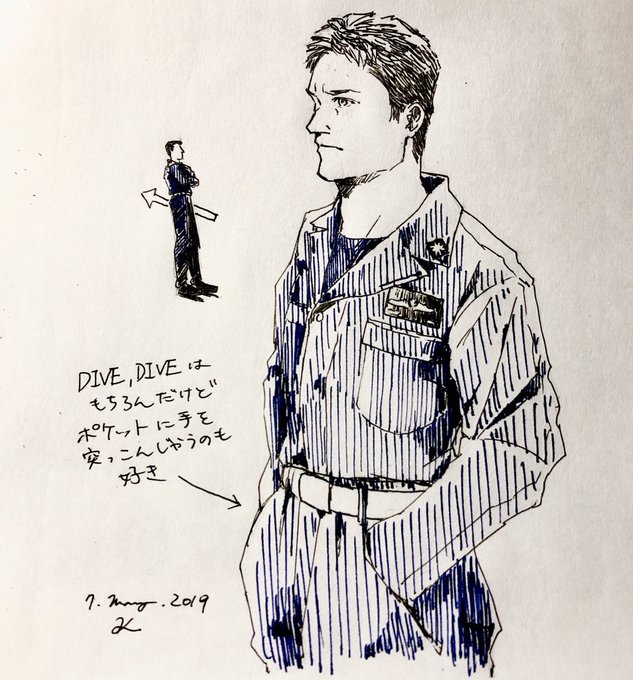 DIVE, DIVE は
もちろんだけど
ポケットに手を
突っこんじゃうのも
好き
7. May. 2019